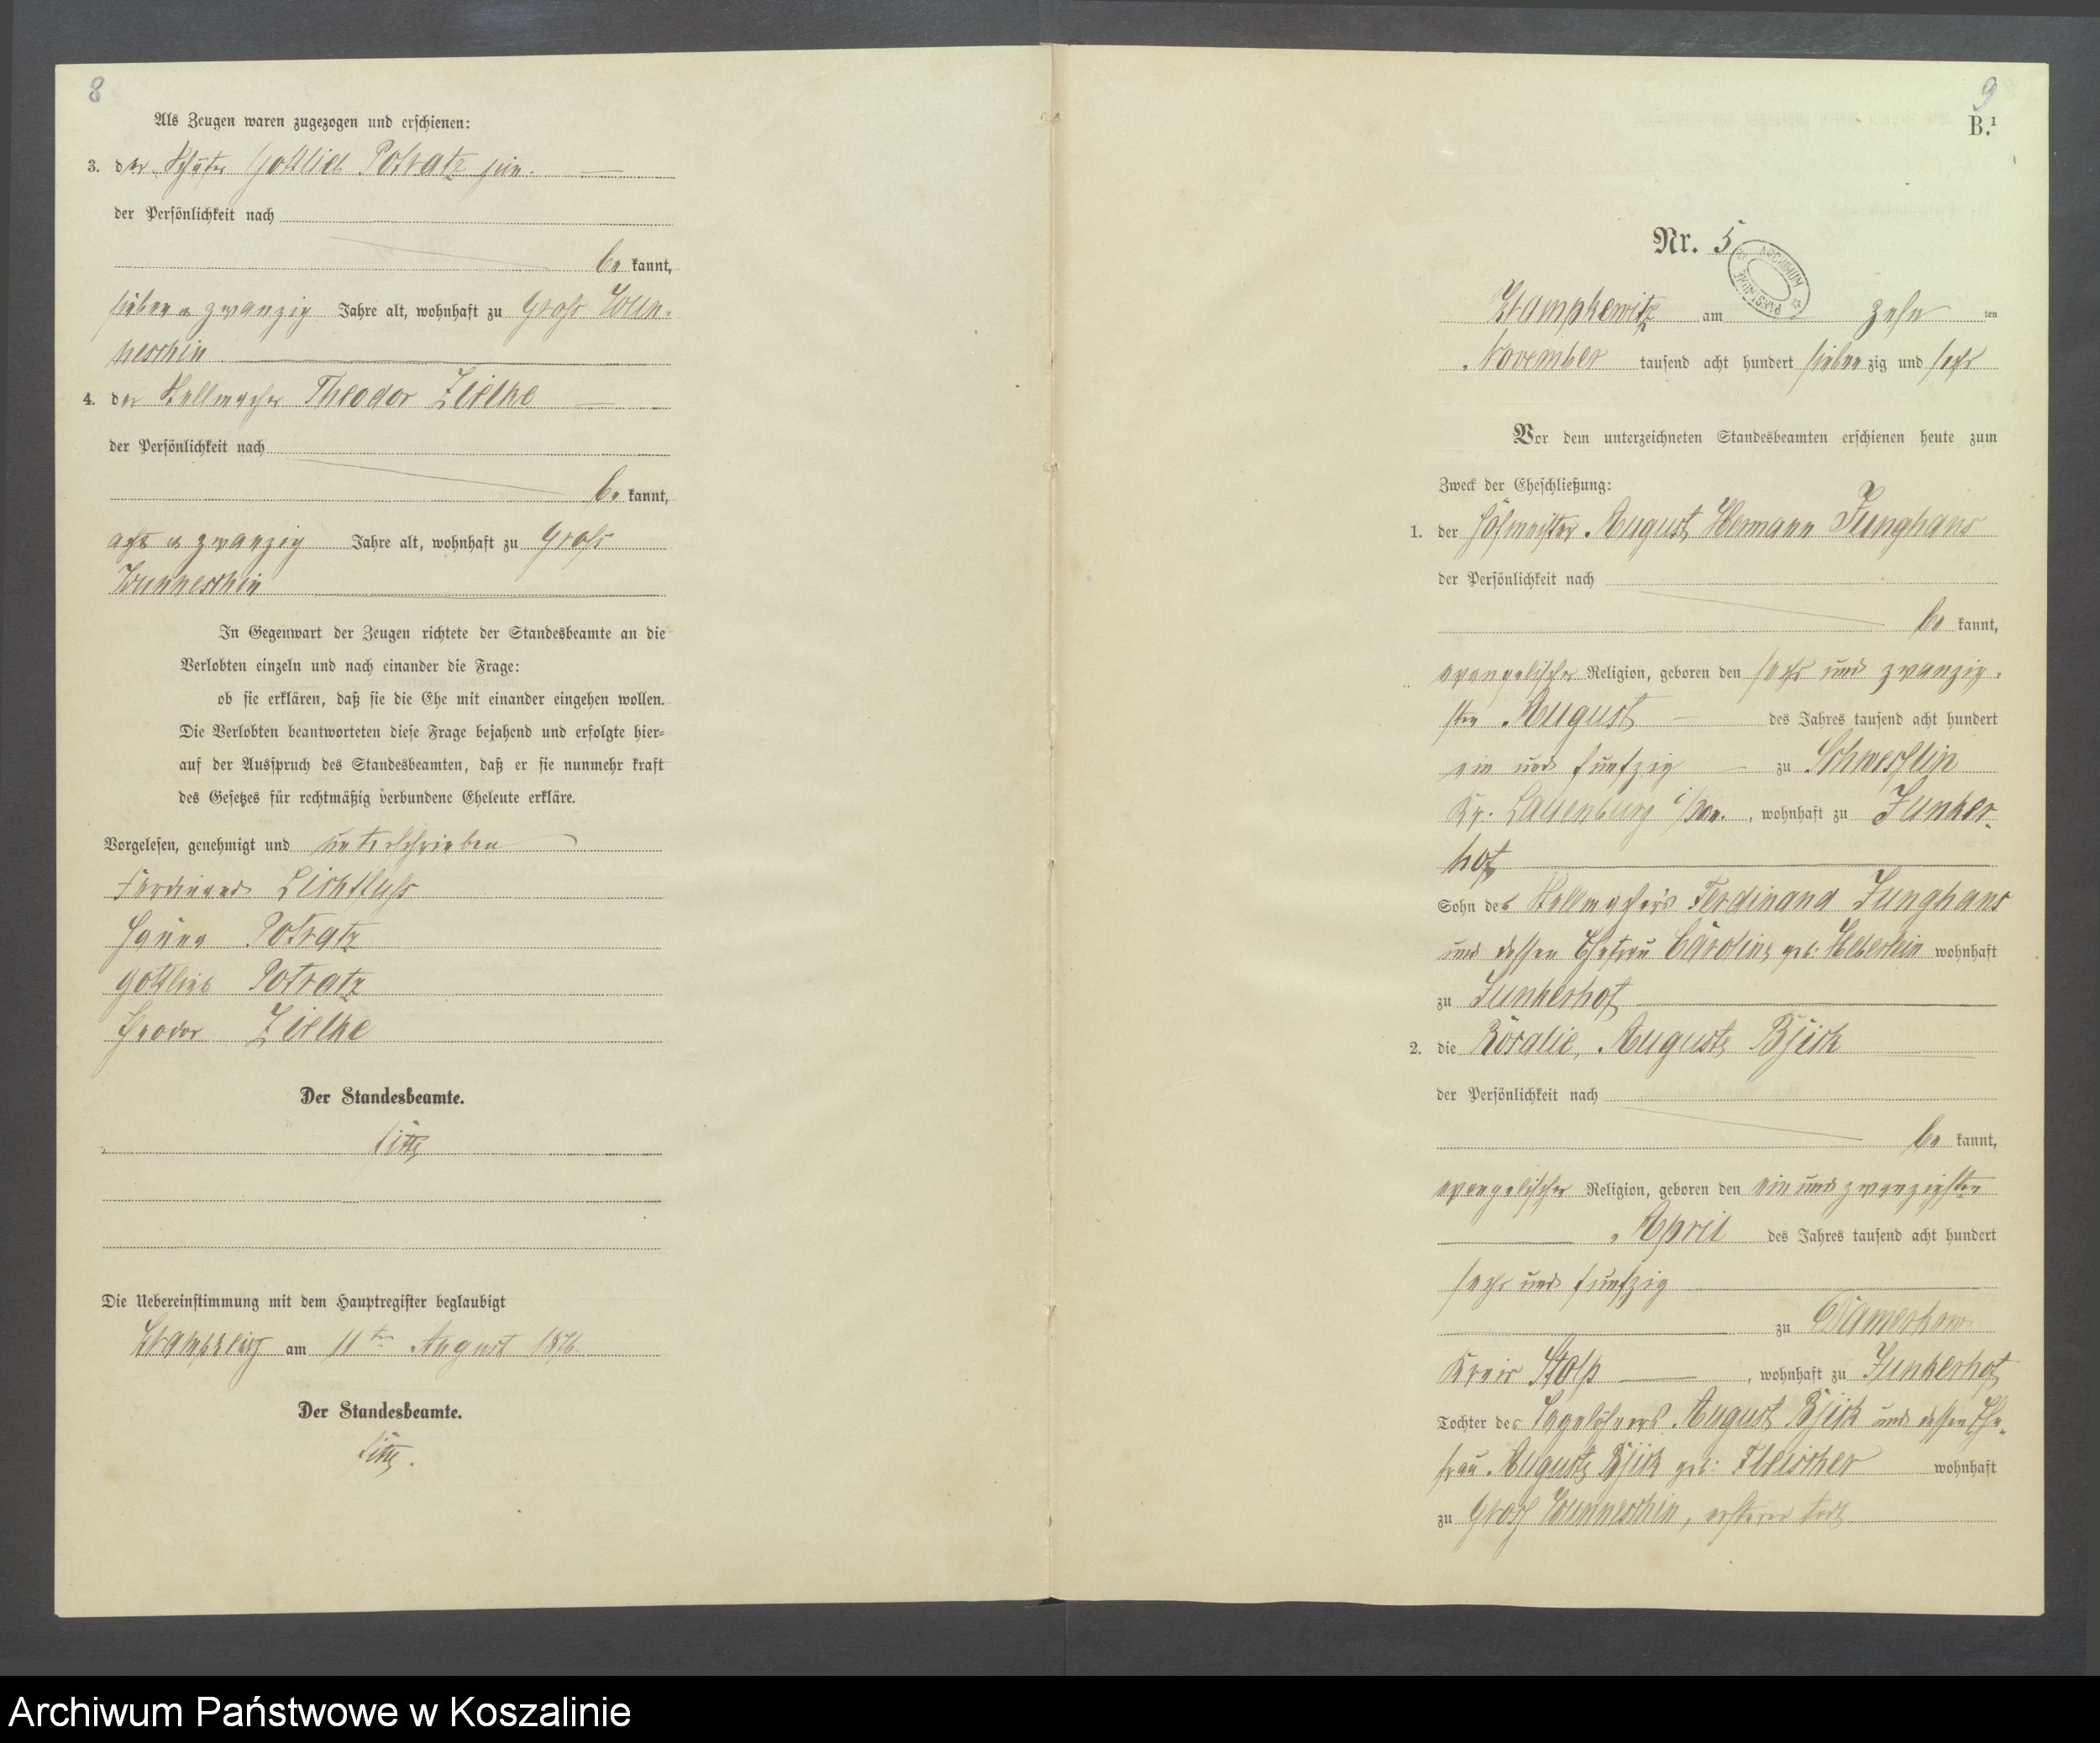 8
Als Zeugen waren zugezogen und erschienen:
3. der Schäfer Gottlieb Potratz jun.
der Persönlichkeit nach
be kannt,
sieben u zwanzig Jahre alt, wohnhaft zu Groß Wun-
neschin
4. der Stellmacher Theodor Zielke
der Persönlichkeit nach
be kannt,
acht u zwanzig Jahre alt, wohnhaft zu Groß
Wunneschin
In Gegenwart der Zeugen richtete der Standesbeamte an die
Verlobten einzeln und nach einander die Frage:
ob sie erklären, daß sie die Ehe mit einander eingehen wollen.
Die Verlobten beantworteten diese Frage bejahend und erfolgte hier=
auf der Ausspruch des Standesbeamten, daß er sie nunmehr kraft
des Gesetzes für rechtmäßig verbundene Eheleute erkläre.
Vorgelesen, genehmigt und unterschrieben
Ferdinand Lichtfuß
Potratz
Gottlieb Potratz
Theodor Zielke
Der Standesbeamte.
Die Uebereinstimmung mit dem Hauptregister beglaubigt
am 11ten August 1876.
Der Standesbeamte.
9
B.1
Nr. 5
ARCHIWUM
Krampkewitz am zehn ten
November tausend acht hundert sieben zig und sechs
Vor dem unterzeichneten Standesbeamten erschienen heute zum
Zweck der Eheschließung:
1. der Hofmeister August Hermann Junghans
der Persönlichkeit nach
be kannt,
evangelischer Religion, geboren den sechs und zwanzig-
sten August des Jahres tausend acht hundert
ein und funfzig zu Schweslin
Kr. Lauenburg i/Pom. , wohnhaft zu Junker-
hof
Sohn des Stellmachers Ferdinand Junghans
und dessen Ehefrau Caroline geb: Heberlein wohnhaft
zu Junkerhof
2. die Rosalie, Auguste Bjick
der Persönlichkeit nach
be kannt,
evangelischer Religion, geboren den ein und zwanzigsten
April des Jahres tausend acht hundert
sechs und funfzig
zu Damerkow
Kreis Stolp , wohnhaft zu Junkerhof
Tochter des Tagelöhners August Bjick und dessen Ehe-
frau Auguste Bjick geb: Fleischer wohnhaft
zu Groß Wunneschin, ersterer todt
Archiwum Państwowe w Koszalinie